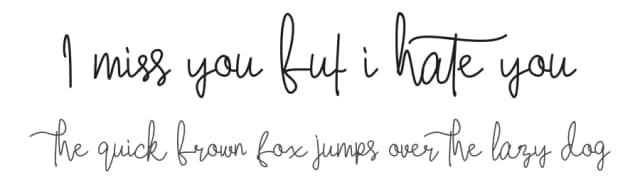 I miss you but i hate you
the quick brown fox jumps over the lazy dog